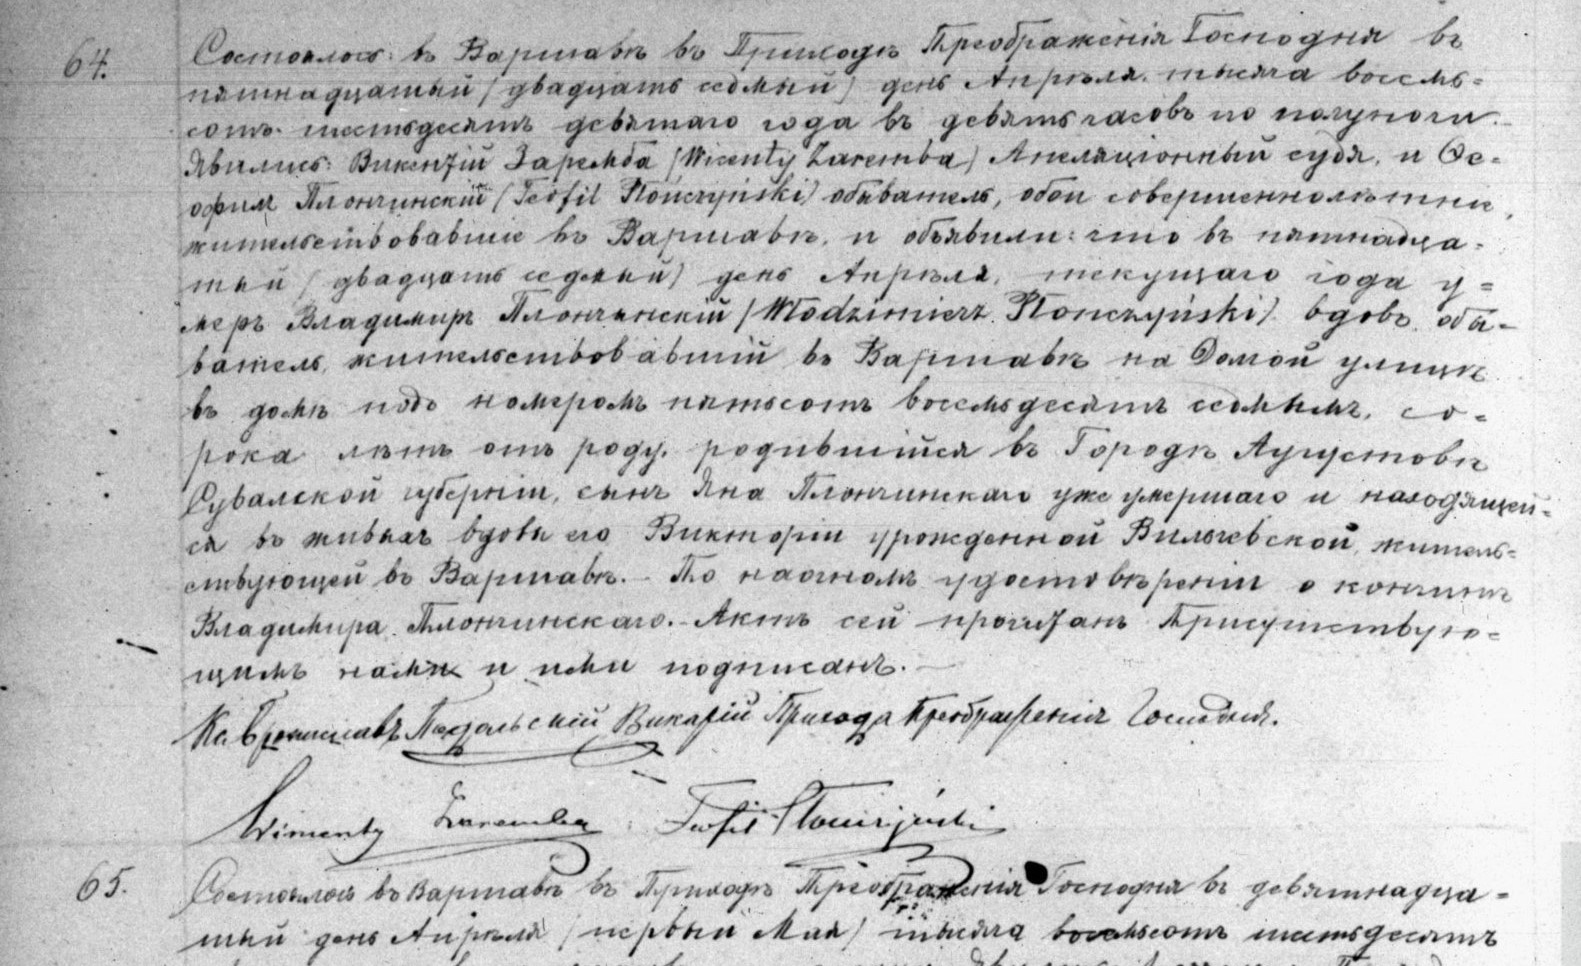 64.
Состоялось: въ Варшавѣ въ Приходѣ Преображенія Господня въ
пятнадцатый (двадцать седмый) день Апрѣля тысяча восемь=
сотъ шестьдесятъ девятаго года въ девять часовъ по полуночи.
Явились: Викентій Заремба (Wicenty Zaremba) Апеляціонный судя, и Ѳе=
офил Плончинскій (Teofil Płończyński) обыватель, обои совершеннолѣтніе,
жительствовавшіе въ Варшавѣ, и объявили: что въ пятнадца=
тый (двадцать седмый) день Апрѣля, текущаго года у=
меръ Владимиръ Плончинскій (Włodzimierz Płonczyński) вдовъ, обы=
ватель, жительствовавшій въ Варшавѣ на улицѣ
въ домѣ подъ номеромъ пятьсотъ восемьдесятъ седмымъ, со=
рока лѣтъ отъ роду, родившійся въ Городѣ Аугустовѣ
Сувалской губерніи, сынъ Яна Плончинскаго уже умершаго и находящей=
ся въ живыхъ вдовы его Викторіи урожденной Вильчевской, житель=
ствующей въ Варшавѣ. — По наочномъ удостовѣреніи о кончинѣ
Владимира Плончинскаго. — Актъ сей прочтанъ Присутствую=
щимъ нами и ими подписанъ. —
Кс. Брониславъ Викарій Прихода Преображенія Господня.
Wincenty Zaremba Teofil Płończyński
65.
Состоялось въ Варшавѣ въ Приходѣ Преображенія Господня въ девятнадца=
тый день Апрѣля (первый Мая) тысяча восемьсотъ шестьдесятъ